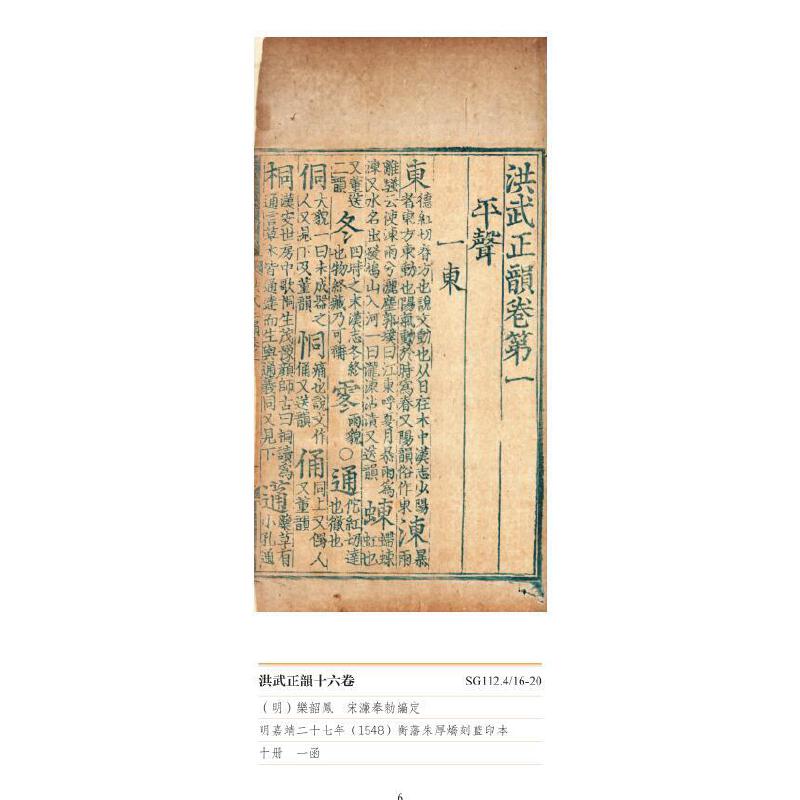 洪武正韻卷第一
平聲
一東
東 德紅切春方也說文動也从日在木中漢志少陽者東方東動也陽氣動於時為春又陽韻俗作東 涷 暴雨
離騷云使涷雨兮灑塵郭璞曰江東呼夏月暴雨為涷又水名出發鳩山入河一曰瀧涷沾漬又送韻 蝀 螮蝀虹也
又董送二韻 冬 四時之末漢志冬終也物終藏乃可稱 零 雨貌 ○ 通 佗紅切達也徹也
侗 大貌一曰未成器之人又見下及董韻 恫 痛也說文作俑又送韻 俑 同上又偶人又董韻
桐 漢安世房中歌桐生茂豫顏師古曰桐讀為通言草木皆通達而生與通義同又見下 藥草有小孔通
洪武正韻十六卷 SG112.4/16-20
（明）樂韶鳳 宋濂奉勅編定
明嘉靖二十七年（1548）衡藩朱厚燆刻藍印本
十册 一函
6